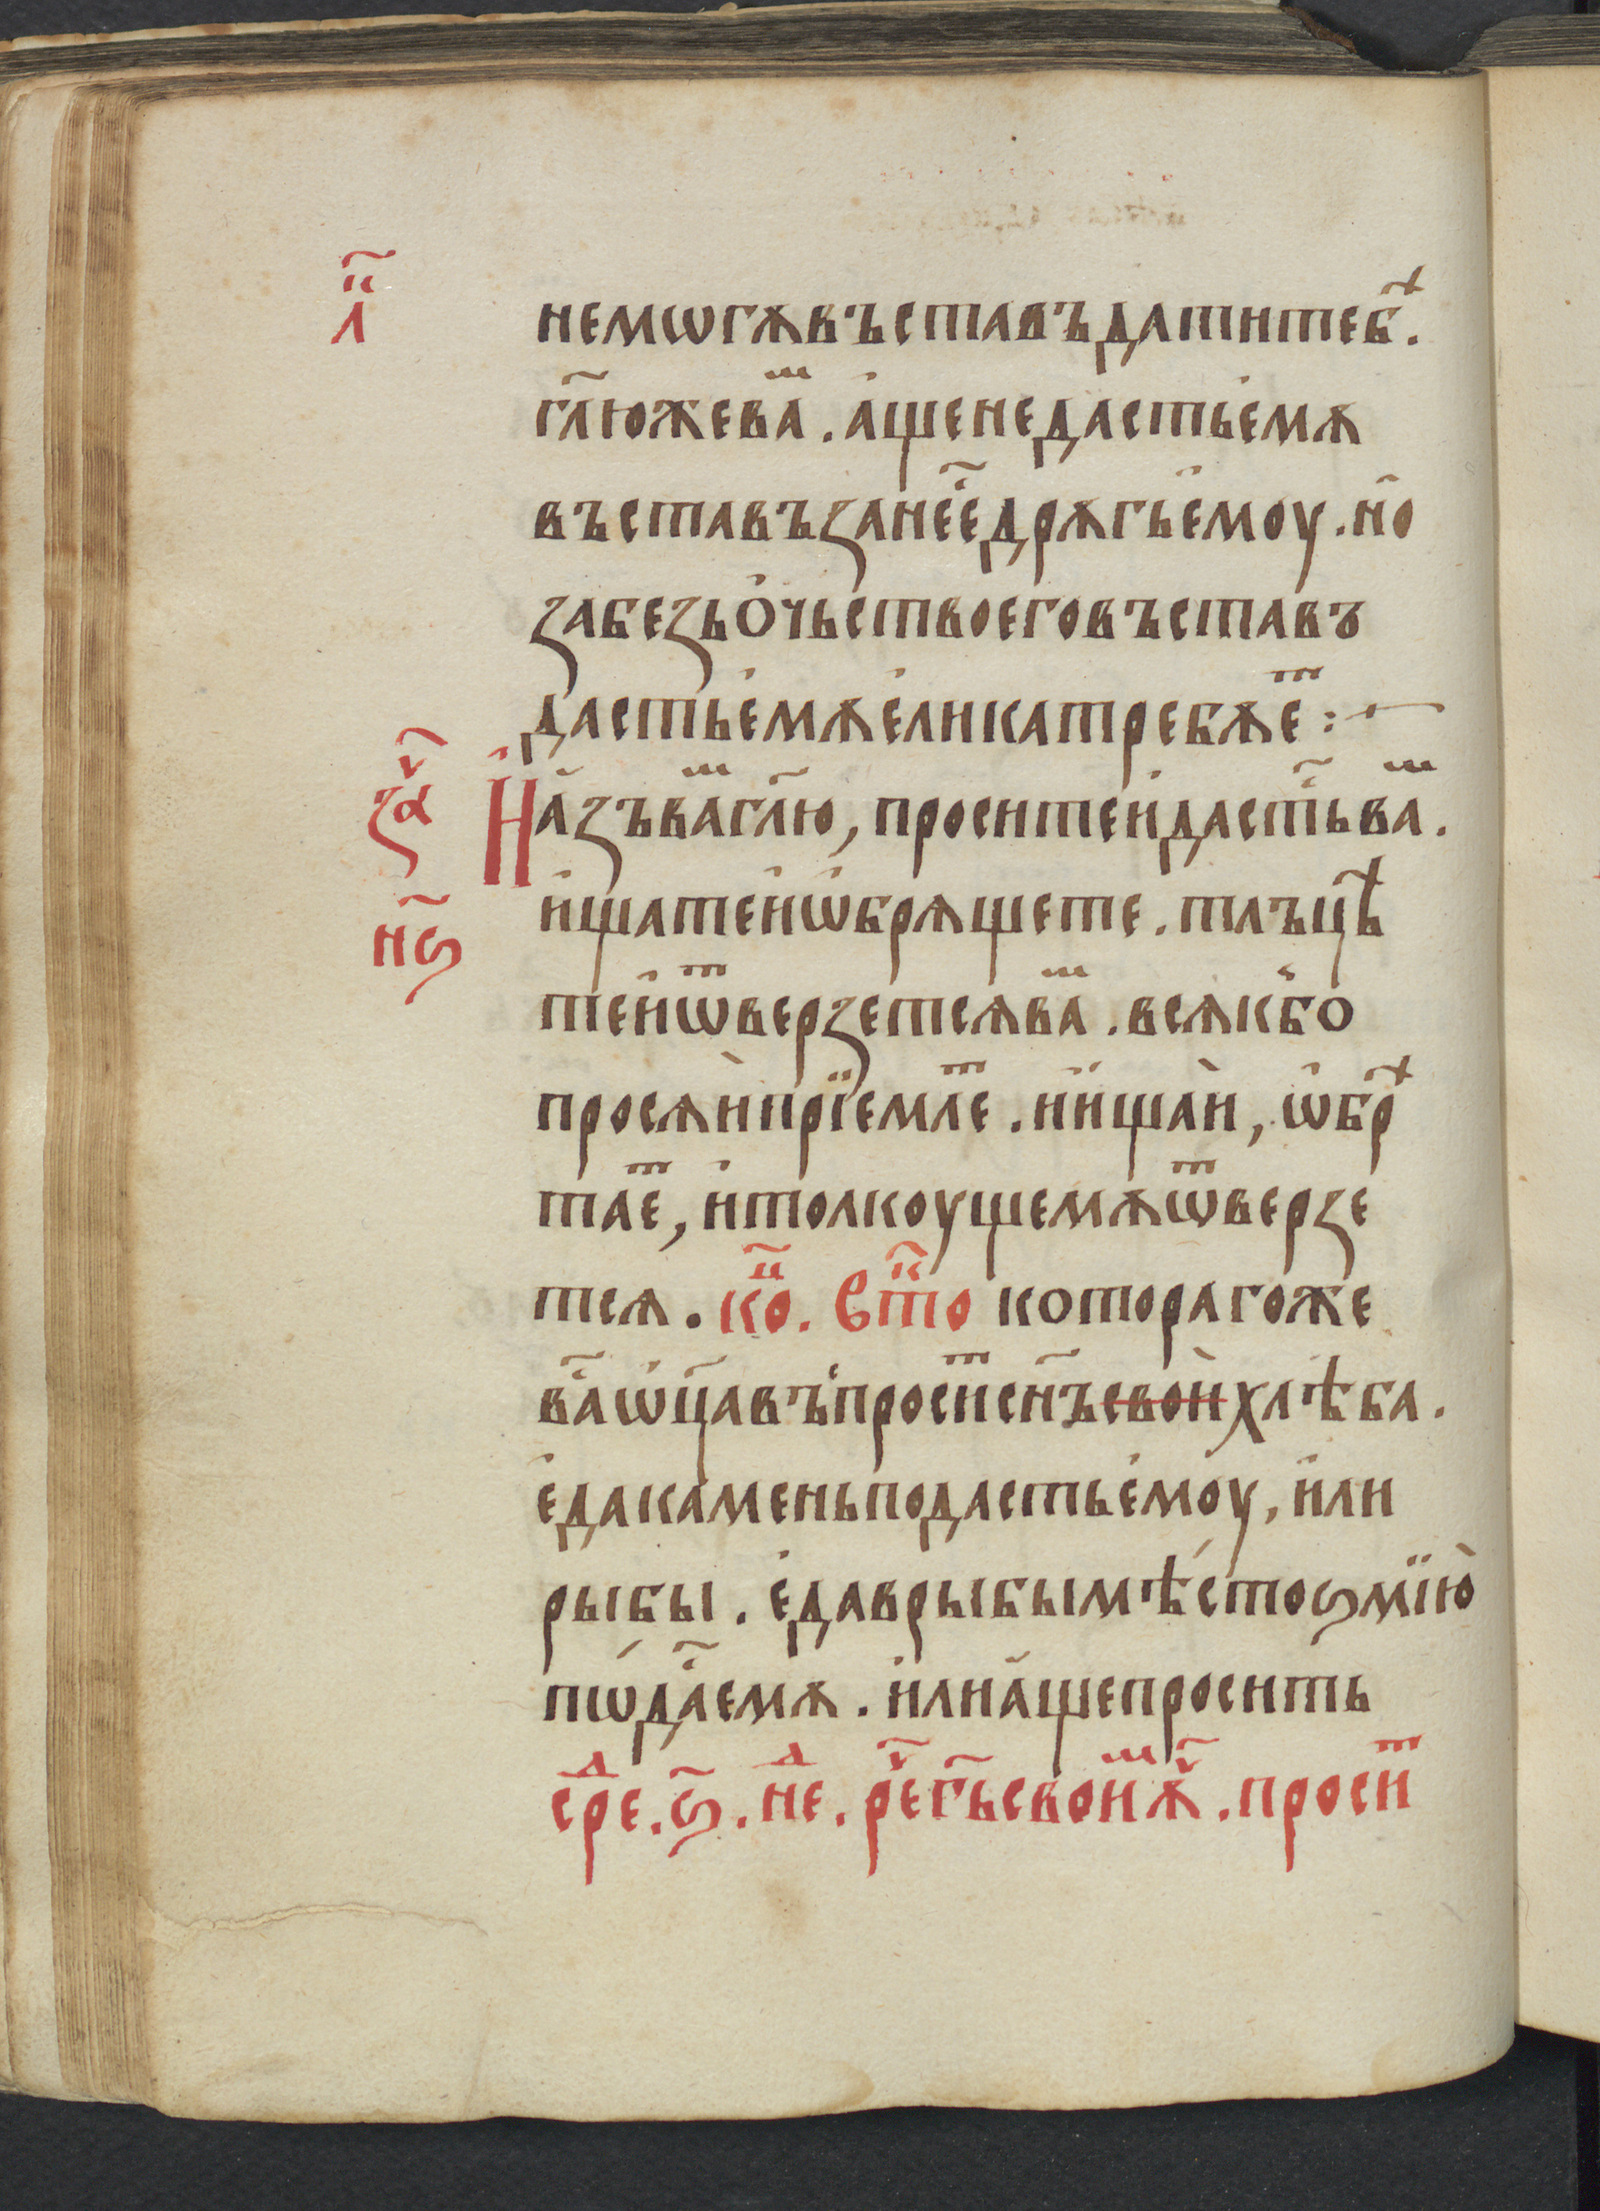 л҃и
немѡгѫвъставъдатитеб҃ѣ.
гл҃южева ͫ. а҆щенедастье҆мѫ
въставъꙁане҆едрѫгъе҆моу. но҆
ꙁабеꙁьо҆чьствоеговъставъ
дастье҆мѫе҆ликатребѫе ͭ :·
ꙁа ч҃
Иа҆ꙁъва ͫгл҃ю, проситеи҆даст҃ьва ͫ.
н҃ѕ
и҆щатеи҆ѡ҆брѧщете. тлъцѣ
теи҆ѿверꙁетсѧва ͫ. всѧкбо
просѧ̀ипрїемле ͭ. ии҆ща̀и, ѡ҆брѣ
тае ͭ, и҆толкоущемѫѿверꙁе
тсѧ. ко ⷰ҇. вто ⷦ҇ которагоже
ва҃ѡц҃авъ́проси ͭсн҃ъсвоихлѣба.
е҆дакаменьподастье҆моу, и҆ли
рыбы. е҆даврыбымѣ́стоѕмїю̀
пѡ́да҃емѫ. и҆лиа҆щепросить
сре ⷣ. ѕ҃. не ⷣ. ре ⷱ҇гь҃свои ͫѫ ⷱ҇. проси ͭ